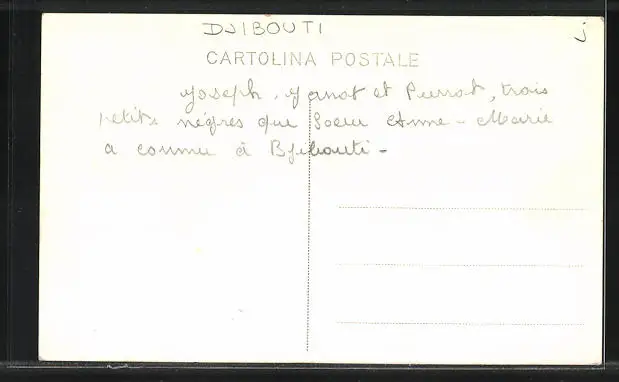 DJIBOUTI
J
CARTOLINA POSTALE
Joseph, Janot et Pierrot, trois
petits nègres que Soeur Anne-Marie
a connu à Djibouti-